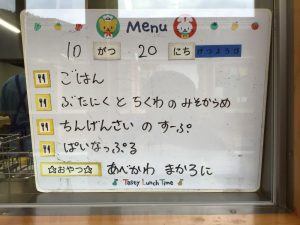 Menu
10 がつ 20 にち げつようび
ごはん
ぶたにくと ちくわ の みそからめ
ちんげんさい の すーぷ。
ぱいなっぷる
☆おやつ☆ あべかわ まかろに
Tasty Lunch Time